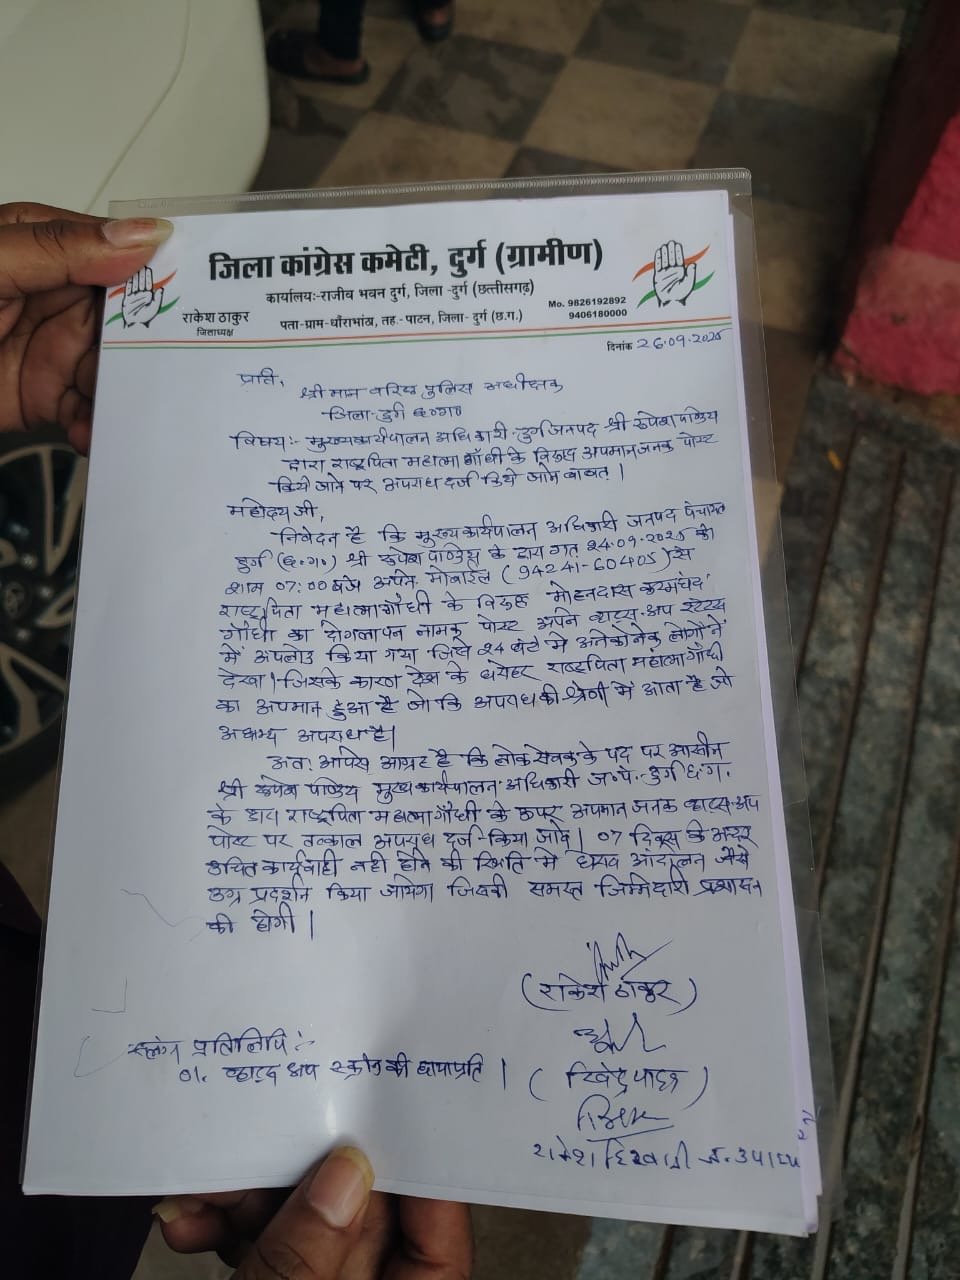 जिला कांग्रेस कमेटी, दुर्ग (ग्रामीण)
कार्यालयः-राजीव भवन दुर्ग, जिला -दुर्ग (छत्तीसगढ़)
राकेश ठाकुर
जिलाध्यक्ष
पता-ग्राम-धौराभांठा, तह.- पाटन, जिला- दुर्ग (छ.ग.)
Mo. 9826192892
9406180000
दिनांक 26.09.2025
प्रति,
श्रीमान वरिष्ठ पुलिस अधीक्षक
जिला-दुर्ग छ०ग०
विषय:- मुख्यकार्यपालन अधिकारी-दुर्ग जनपद श्री रूपेश पाण्डेय
द्वारा राष्ट्रपिता महात्मा गाँधी के विरूद्ध अपमानजनक पोस्ट
किये जाने पर अपराध दर्ज किये जाने बाबत्।
महोदय जी,
निवेदन है कि मुख्यकार्यपालन अधिकारी जनपद पंचायत
दुर्ग (छ.ग.) श्री रूपेश पाण्डेय के द्वारा गत 24.09.2025 को
शाम 07:00 बजे अपने मोबाईल (94241-60405) से
राष्ट्रपिता महात्मा गाँधी के विरूद्ध मोहनदास करमचंद
गाँधी का दोगलापन नामक पोस्ट अपने व्हाट्स-अप स्टेटस
में अपलोड किया गया जिसे 24 घंटे में अनेकोनेक लोगों ने
देखा। जिसके कारण देश के धरोहर राष्ट्रपिता महात्मा गाँधी
का अपमान हुआ है जो कि अपराध की श्रेणी में आता है जो
अक्षम्य अपराध है।
अतः आपसे आग्रह है कि लोक सेवक के पद पर आसीन
श्री रूपेश पाण्डेय मुख्यकार्यपालन-अधिकारी ज.पं. दुर्ग छ.ग.
के द्वारा राष्ट्रपिता महात्मा गाँधी के ऊपर अपमान जनक व्हाट्स-अप
पोस्ट पर तत्काल अपराध दर्ज-किया जावे। 07 दिवस के अन्दर
उचित कार्यवाही नही होने की स्थिति में घेराव आंदोलन जैसे
उग्र प्रदर्शन किया जायेगा जिसकी समस्त जिम्मेदारी प्रशासन
की होगी।
(राकेश ठाकुर)
संलग्न प्रतिलिपि:-
01. व्हाट्स अप स्क्रीन की छायाप्रति।
राकेश